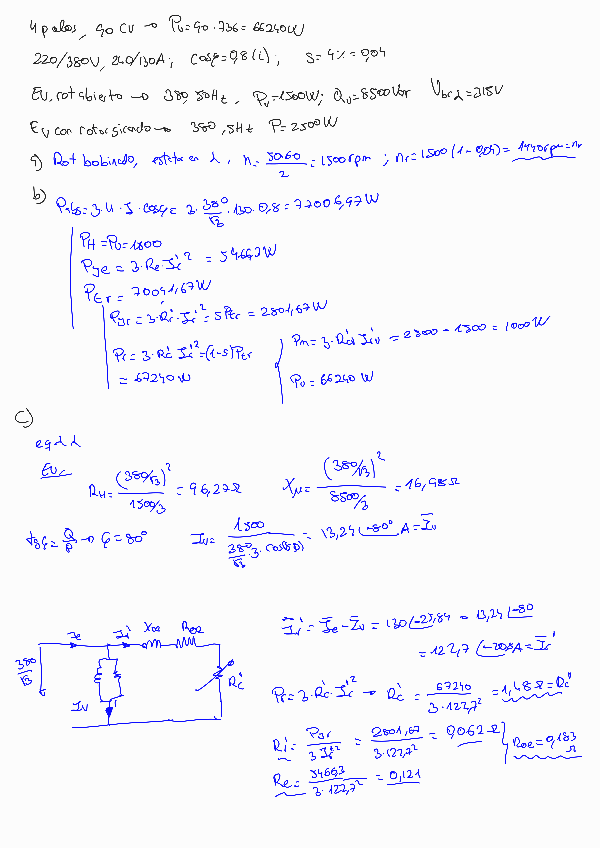 4 polos, 90 CV → Pu=90·736=66240W
220/380V, 240/130A; cosφ=0,8(i); S=4%=0,04
EV, rot abierto → 380, 50Hz, Pv=1500W; Qv=8500Var Vbrλ=215V
EV con rotor girando → 380, 5Hz P=2500W
a) Rot bobinado, estator en λ, n=50·60/2=1500rpm; nr=1500(1-0,04)=1440rpm=nr
b) Pabs=3·U·I·cosφ=3·380/√3·130·0,8=77005,97W
PH=Pv=1500
Pje=3·Re·Ii'²=5466,3W
PEr=70041,67W
Pjr=3·Ri'·Ii'²=sPEr=2801,67W
Pi=3·Rc'·Ii'²=(1-s)PEr
=67240W
Pm=3·Rcv'·Iiv²=2500-1500=1000W
Pu=66240W
c)
eq λλ
EV
RH=(380/√3)²/1500/3=96,27Ω
Xμ=(380/√3)²/8500/3=16,98Ω
tgφ=Q/P → φ=80°
Iv=1500/380/√3·3·cos(80)=13,24∠-80°A=Iv
Ie Ii' Xcc Rcc
380/√3
Iv
Rc'
Ii'=Ie-Iv=130∠-25,84-13,24∠-80
=122,7∠-20,8A=Ii'
Pi=3·Rc'·Ii'² → Rc'=67240/3·122,7²=1,48Ω=Rc'
Ri'=Pjr/3Ii'²=2801,67/3·122,7²=0,062Ω
Rcc=0,183Ω
Re=5466,3/3·122,7²=0,121